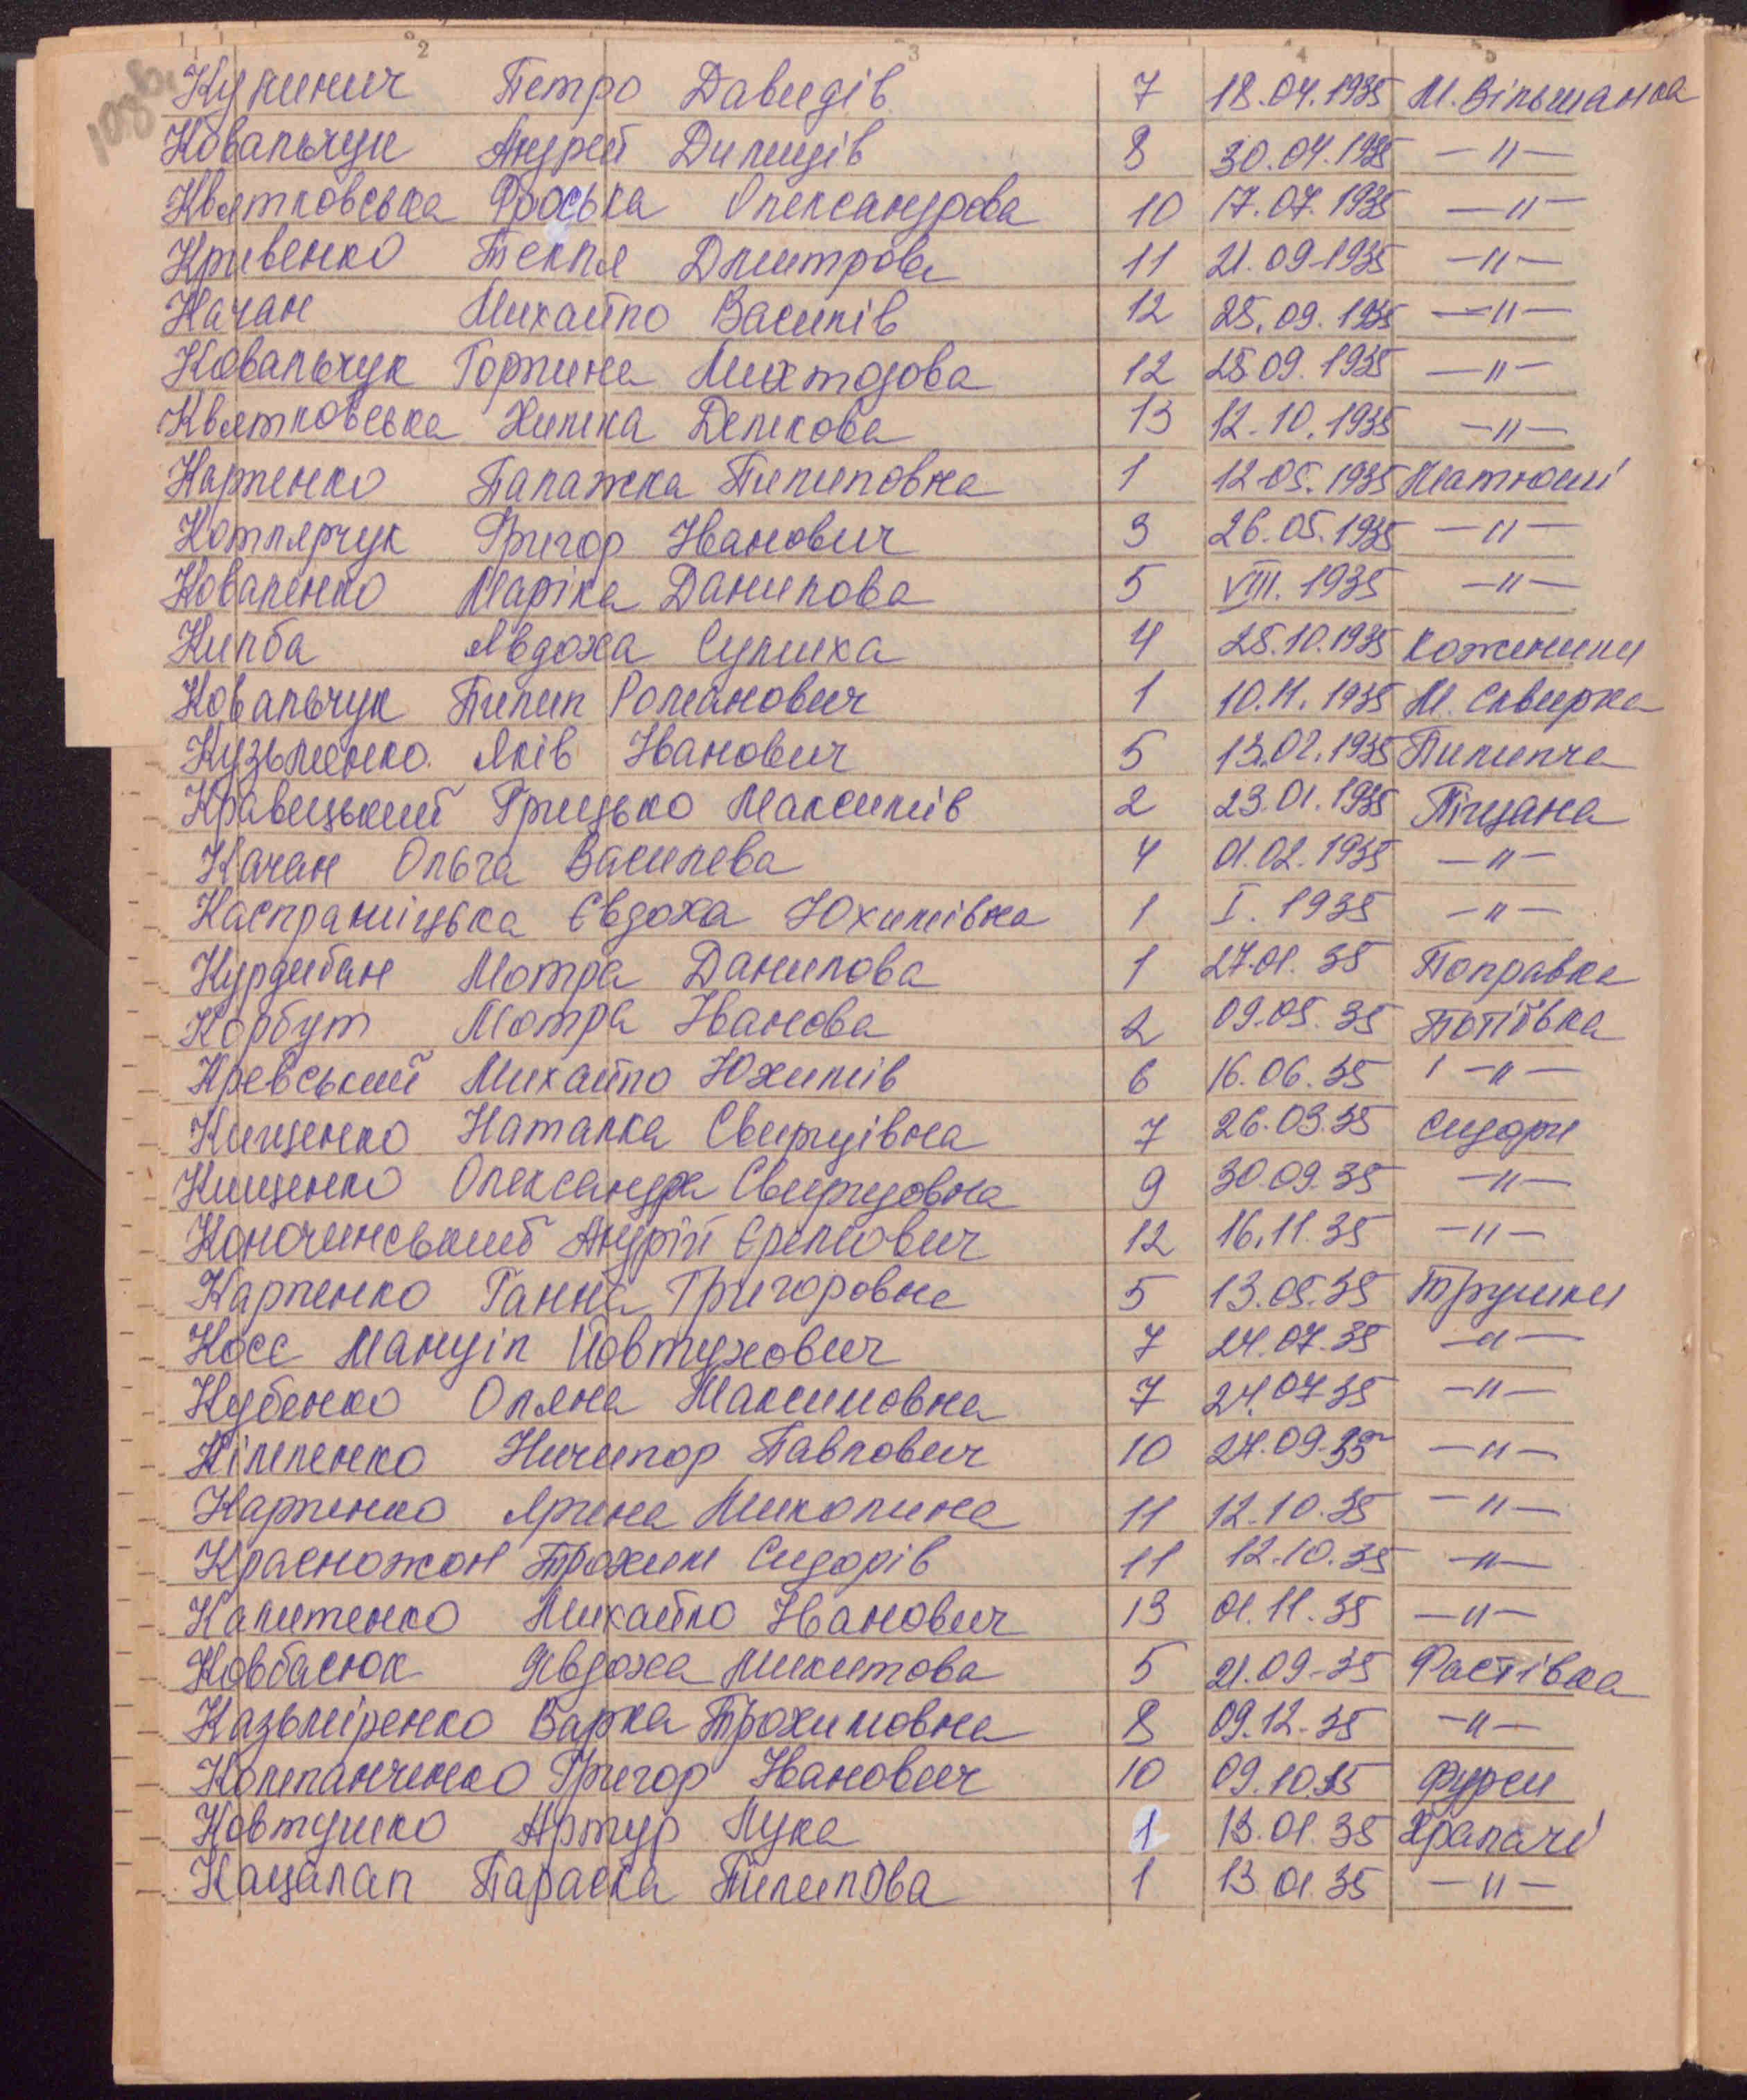 2 3 4 5
Кулинич Петро Давидів 7 18.04.1935 М. Вільшанка
Ковальчук Андрей Дилидів 8 30.04.1935 —"—
Квятковська Фроська Олександрова 10 17.07.1935 —"—
Кривенко Текля Дмитрова 11 21.09.1935 —"—
Качан Михайло Василів 12 25.09.1935 —"—
Ковальчук Горпина Михтодова 12 25.09.1935 —"—
Квятковська Химка Демкова 13 12.10.1935 —"—
Карпенко Палажка Пилиповна 1 12.05.1935 Матюші
Котлярчук Григор Іванович 3 26.05.1935 —"—
Коваленко Маріка Данилова 5 VIII.1935 —"—
Килба Явдоха Сулимха 4 25.10.1935 Кожиники
Ковальчук Пилип Романович 1 10.11.1935 М. Сквирка
Кузьменко Яків Іванович 5 13.02.1935 Пилипча
Кравицький Грицько Максимів 2 23.01.1935 Піщана
Качан Ольга Василева 4 01.02.1935 —"—
Каспраніцька Євдоха Юхимівна 1 I.1935 —"—
Курдибан Мотра Данилова 1 27.01.35 Поправка
Корбут Мотра Іванова 2 09.05.35 Потіївка
Кревський Михайло Юхимів 6 16.06.35 —"—
Кищенко Наталка Свиридівна 7 26.03.35 Сидори
Кищенко Олександра Свиридовна 9 30.09.35 —"—
Коночинський Андрій Єремович 12 16.11.35 —"—
Карпенко Ганна Григоровна 5 13.05.35 Трушки
Косс Мануіл Йовтухович 7 24.07.35 —"—
Кубенко Оляна Максимовна 7 24.07.35 —"—
Кілпенко Ничипор Павлович 10 27.09.35 —"—
Карпенко Ярина Миколина 11 12.10.35 —"—
Красножон Трохим Сидорів 11 12.10.35 —"—
Капитенко Михайло Іванович 13 01.11.35 —"—
Ковбасюк Явдоха Микитова 5 21.09.35 Фастівка
Казьміренко Варка Трохимовна 8 09.12.35 —"—
Компанченко Григор Іванович 10 09.10.35 Фурси
Ковтушко Артур Лука 1 13.01.35 Храпачі
Кацалап Параска Пилипова 1 13.01.35 —"—